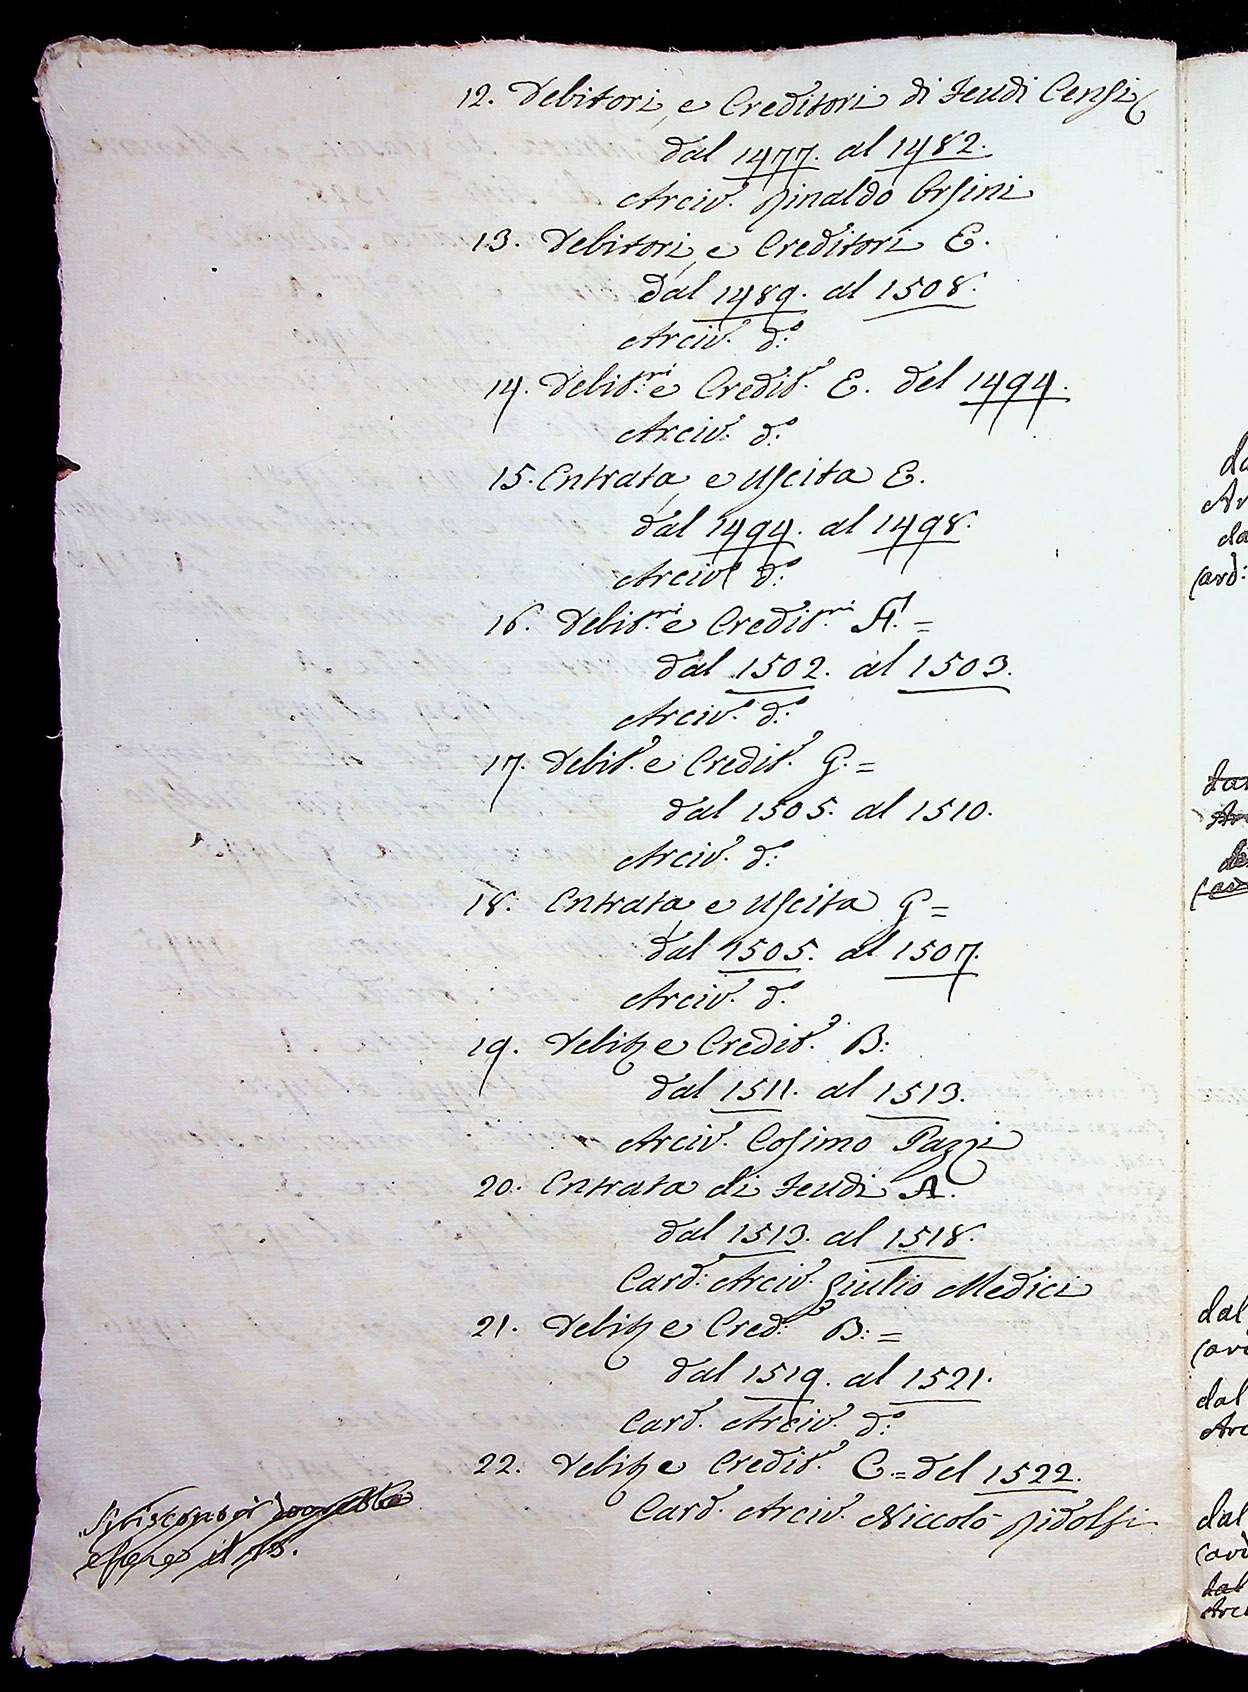 12. Debitori, e Creditori di feudi Censi
dal 1477. al 1482.
Arciv.º Rinaldo Orsini
13. Debitori, e Creditori E.
dal 1489. al 1508.
Arciv. d.º
14. Debit.ri e Credit.i E. del 1494.
Arciv. d.º
15. Entrata, e Uscita E.
dal 1494. al 1498.
Arciv. d.º
16. Debit.ri e Credit.ri A. =
dal 1502. al 1503.
Arciv.º d.º
17. Debit.i e Credit.i G. =
dal 1505. al 1510.
Arciv.º d.º
18. Entrata, e Uscita G =
dal 1505. al 1507.
Arciv.º d.º
19. Debit.i e Credit.i B:
dal 1511. al 1513.
Arciv. Cosimo Pazzi
20. Entrata di feudi A.
dal 1513. al 1518.
Card: Arciv. Giulio Medici
21. Debit.i e Cred.i B: =
dal 1519. al 1521.
Card. Arciv. d.º
22. Debit.i e Credit.i C. = del 1522.
Card. Arciv. Niccolò Ridolfi
Si riscontri
essere il 15.
da
Ar
da
Card:
dal
Car
dal
Arc
dal
Car
dal
Arci